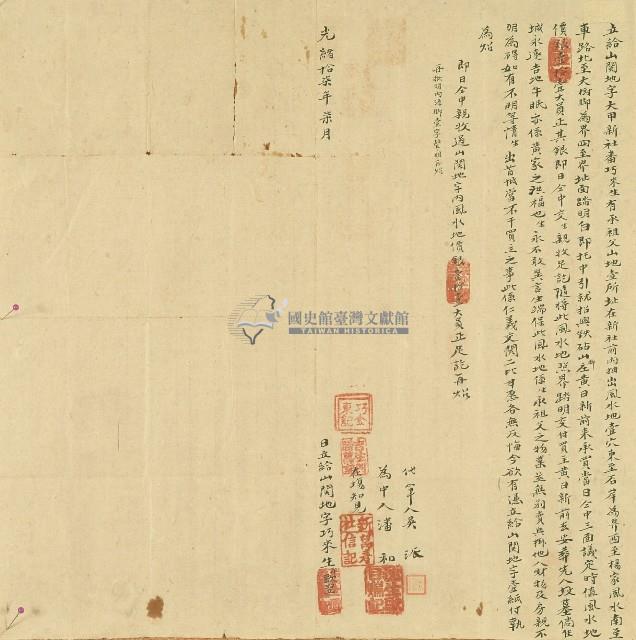 立給山関地字大甲新社番巧米生有承祖父山地壹所址在新社前內抽出風水地壹穴東至石岸為界西至楊家風水南至
車路北至大樹脚為界四至界址面踏明白即托中引就招與鉄砧山脚左黃日新前來承買當日仝中三面議定時值風水地
價銀壹拾壹大員正其銀即日仝中交生親收足訖隨將此風水地照界踏明交付買主黃日新前去安葬先人坟墓倘佳
城永遠吉地牛眠亦係黃家之福也生永不敢異言生端保此風水地係生承祖父之物業並無別賣與掛他人財物及房親不
明為碍如有不明等情生出首抵當不干買主之事此係仁義交関二比甘愿各無反悔今欲有憑立給山関地字壹紙付執
為炤
即日仝中親收過山関地字內風水地價銀壹拾壹大員正足訖再炤
再批明內添脚壹字登明存炤
光緒拾柒年柒月
代筆人吳 派
為中人潘 和
在塲知見
日立給山関地字巧米生
國史館臺灣文獻館
TAIWAN HISTORICA